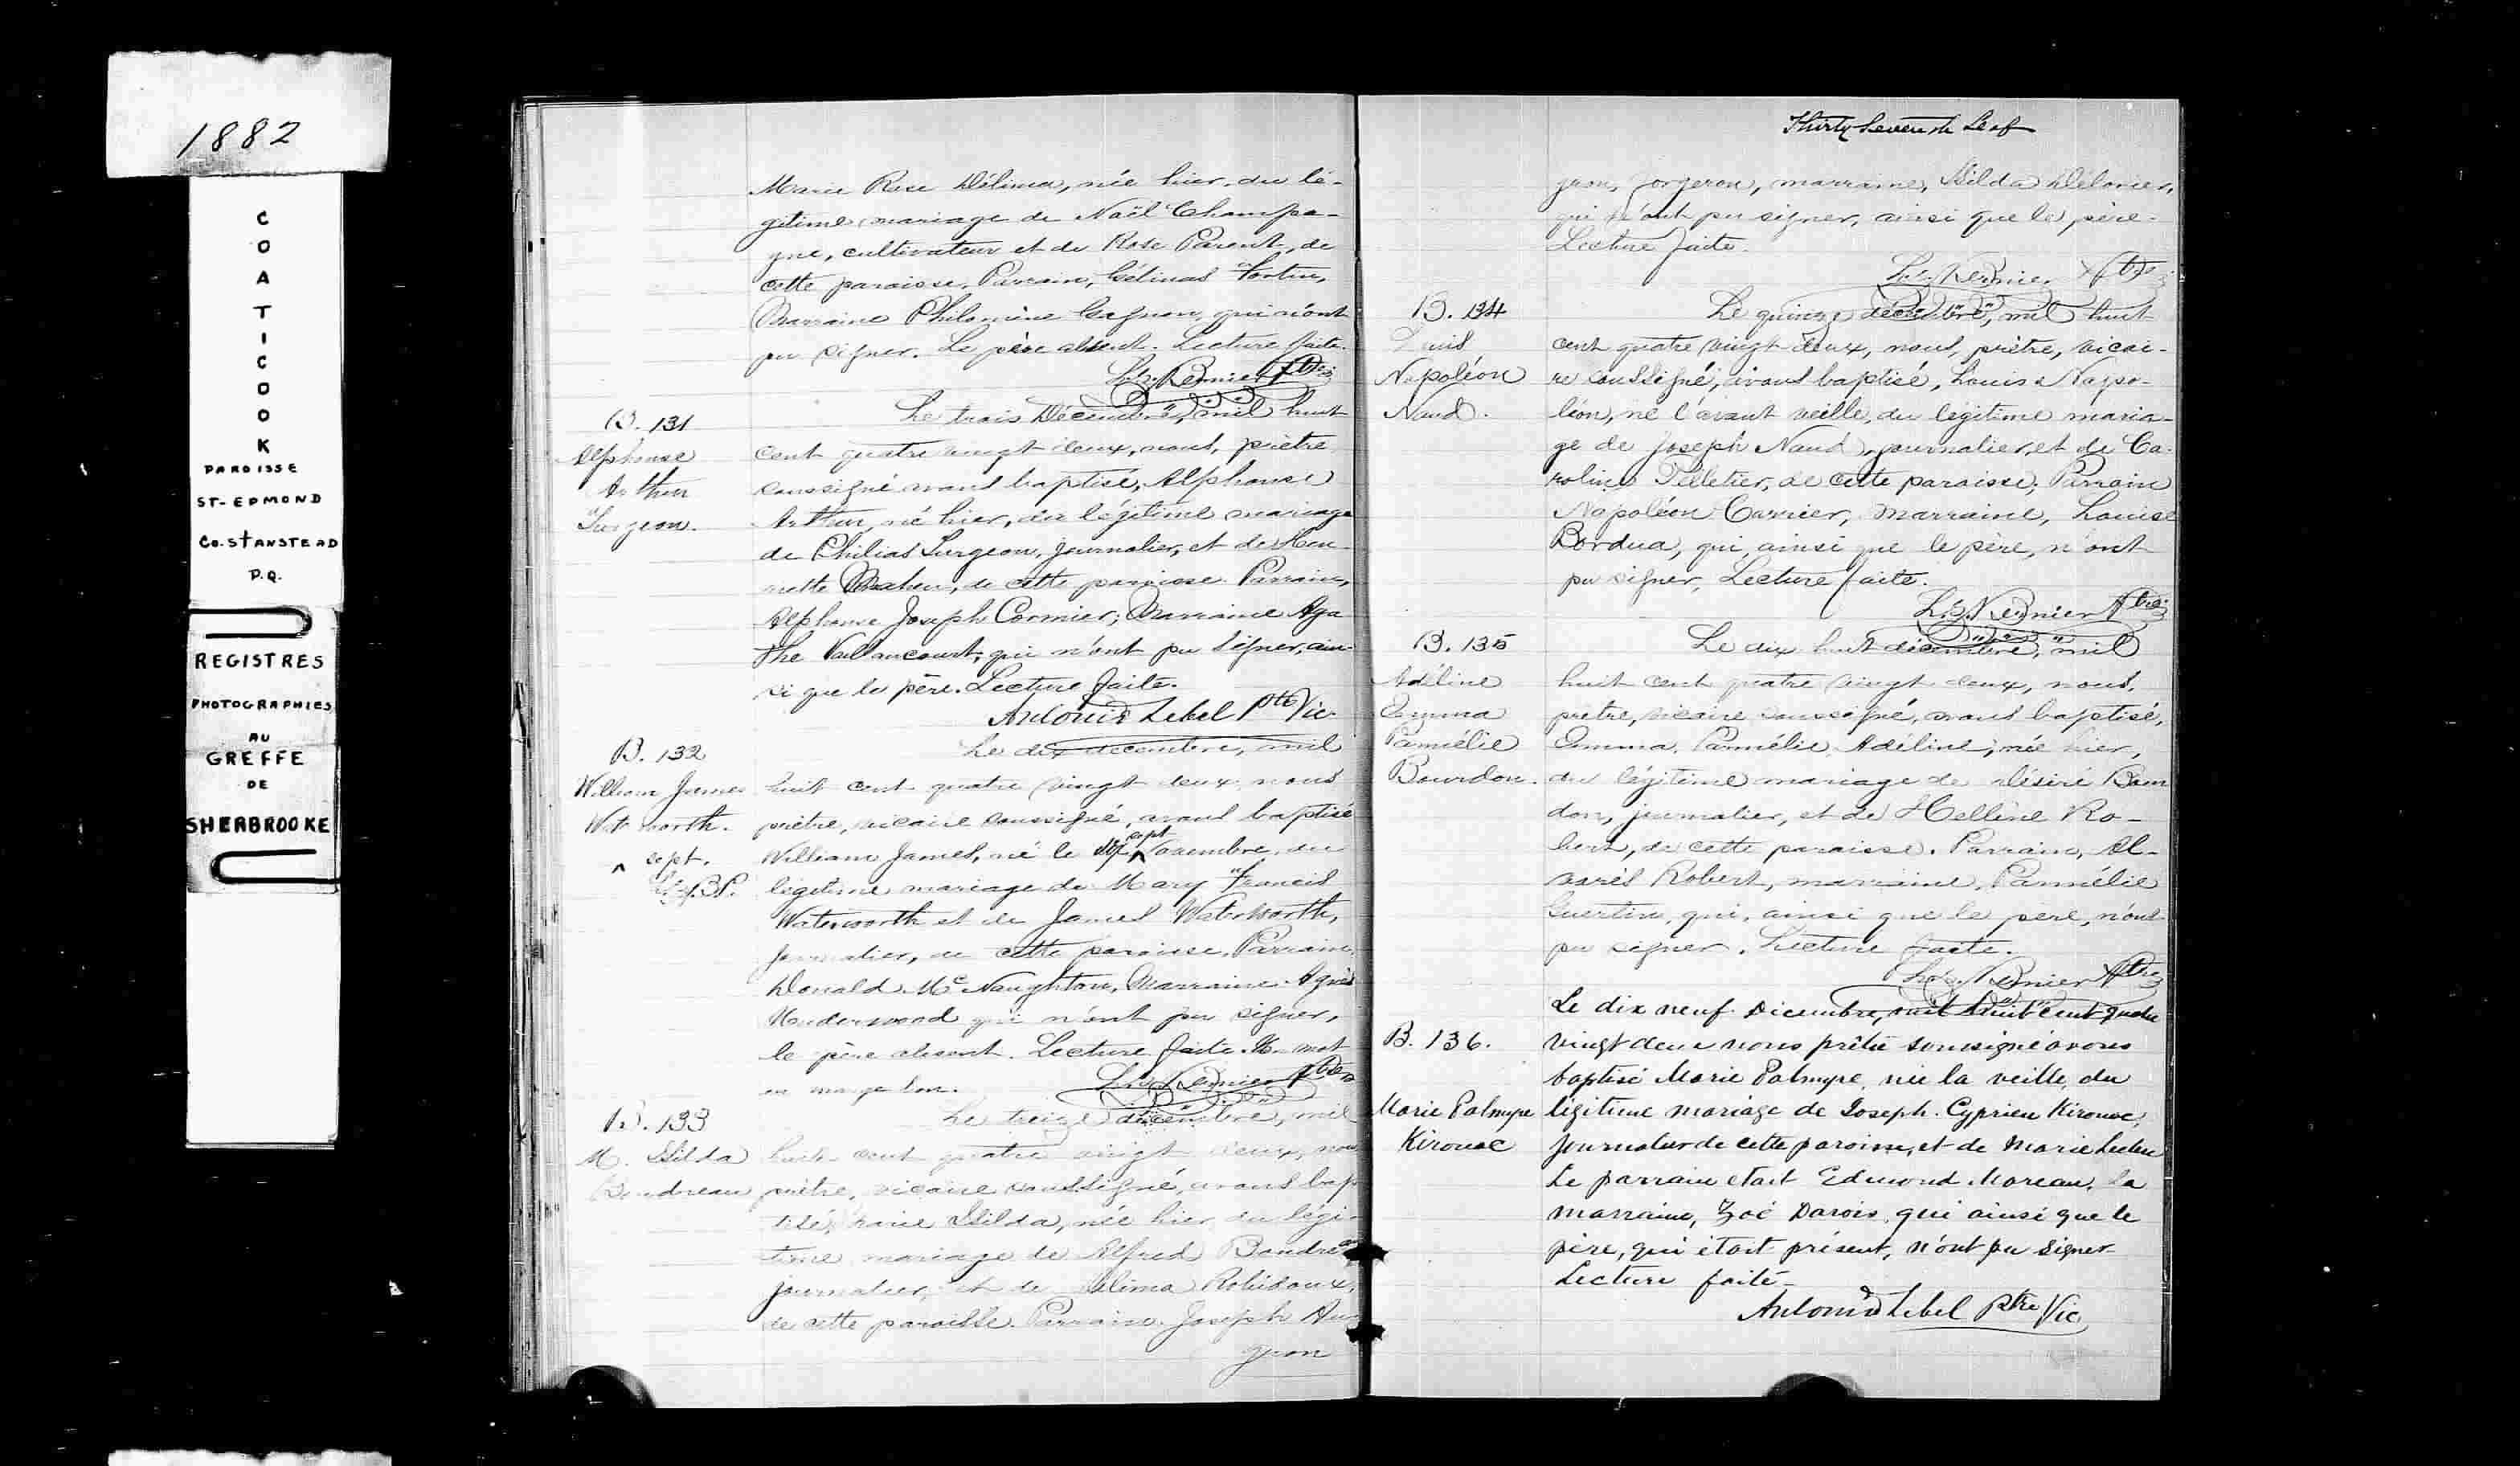 1882
COATICOOK
PAROISSE
ST-EDMOND
CO. STANSTEAD
P.Q.
REGISTRES
PHOTOGRAPHIES
AU
GREFFE
DE
SHERBROOKE
Marie Rose Délima, née hier, du lé-
gitime mariage de Noël Champa-
gne, cultivateur et de Rose Parent, de
cette paroisse, Parrain, Gélinas Fortin,
Marraine Philomène Gagnon, qui n'ont
pu signer. Le père absent. Lecture faite.
Bernier Ptre
B. 131
Alphonse
Arthur
Surgeon.
Le trois Décembre, mil huit
cent quatre vingt deux, nous, prêtre
soussigné avons baptisé, Alphonse
Arthur, né hier, du légitime mariage
de Philias Surgeon, journalier, et de Hen-
riette Maheu, de cette paroisse. Parrain,
Alphonse Joseph Cormier; Marraine Aga
the Vaillancourt, qui n'ont pu signer, ain-
si que le père. Lecture faite.
Antonio Lebel Ptre Vic.
B. 132
William James
Waterworth.
sept.
Le dix decembre, mil
huit cent quatre vingt deux, nous
prêtre, vicaire soussigné, avons baptisé
William James, né le sept Novembre, du
légitime mariage de Mary Francis
Waterworth et de James Waterworth,
journalier, de cette paroisse, Parrain,
Donald McNaughton, Marraine Agnès
Underwood qui n'ont pu signer,
le père absent. Lecture faite. Un mot
en marge bon. Bernier Ptre
B. 133
M. Hilda
Boudreau
Le treize décembre, mil
huit cent quatre vingt deux, nous
prêtre, vicaire soussigné, avons bap
tisé, Marie Hilda, née hier, du légi-
time mariage de Alfred Boudreau
journalier, et de Délima Robidoux,
de cette paroisse. Parrain, Joseph
geon
Thirty Seventh Leaf
geon, forgeron, marraine, Hilda
qui n'ont pu signer, ainsi que le père.
Lecture faite.
Bernier Ptre
B. 134
Louis
Napoléon
Naud.
Le quinze décembre, mil huit
cent quatre vingt deux, nous, prêtre, vicai-
re soussigné, avons baptisé, Louis Napo-
léon, né l'avant veille, du légitime maria-
ge de Joseph Naud, journalier, et de Ca-
roline Pelletier, de cette paroisse; Parrain
Napoléon Carrier, Marraine, Louise
Bordua, qui, ainsi que le père, n'ont
pu signer, Lecture faite.
Bernier Ptre
B. 135
Adéline
Emma
Pamélie
Bourdon.
Le dix huit décembre, mil
huit cent quatre vingt deux, nous,
prêtre, vicaire soussigné, avons baptisé,
Emma, Pamélie, Adéline, née hier,
du légitime mariage de Désiré Bour
don, journalier, et de Hellène Ro-
bert, de cette paroisse. Parrain, Al-
Robert, marraine, Pamélie
Guertin, qui, ainsi que le père, n'ont
pu signer. Lecture faite.
Bernier Ptre
B. 136.
Marie Palmyre
Kirouac
Le dix neuf Décembre, mil huit cent quatre
vingt deux nous prêtre soussigné avons
baptisé Marie Palmyre, née la veille, du
légitime mariage de Joseph. Cyprien Kirouac,
journalier de cette paroisse, et de Marie Leclerc
Le parrain etait Edmond Moreau, la
marraine, Zoé Darois, qui ainsi que le
père, qui était présent, n'ont pu signer
Lecture faite-
Antonio Lebel Ptre Vic